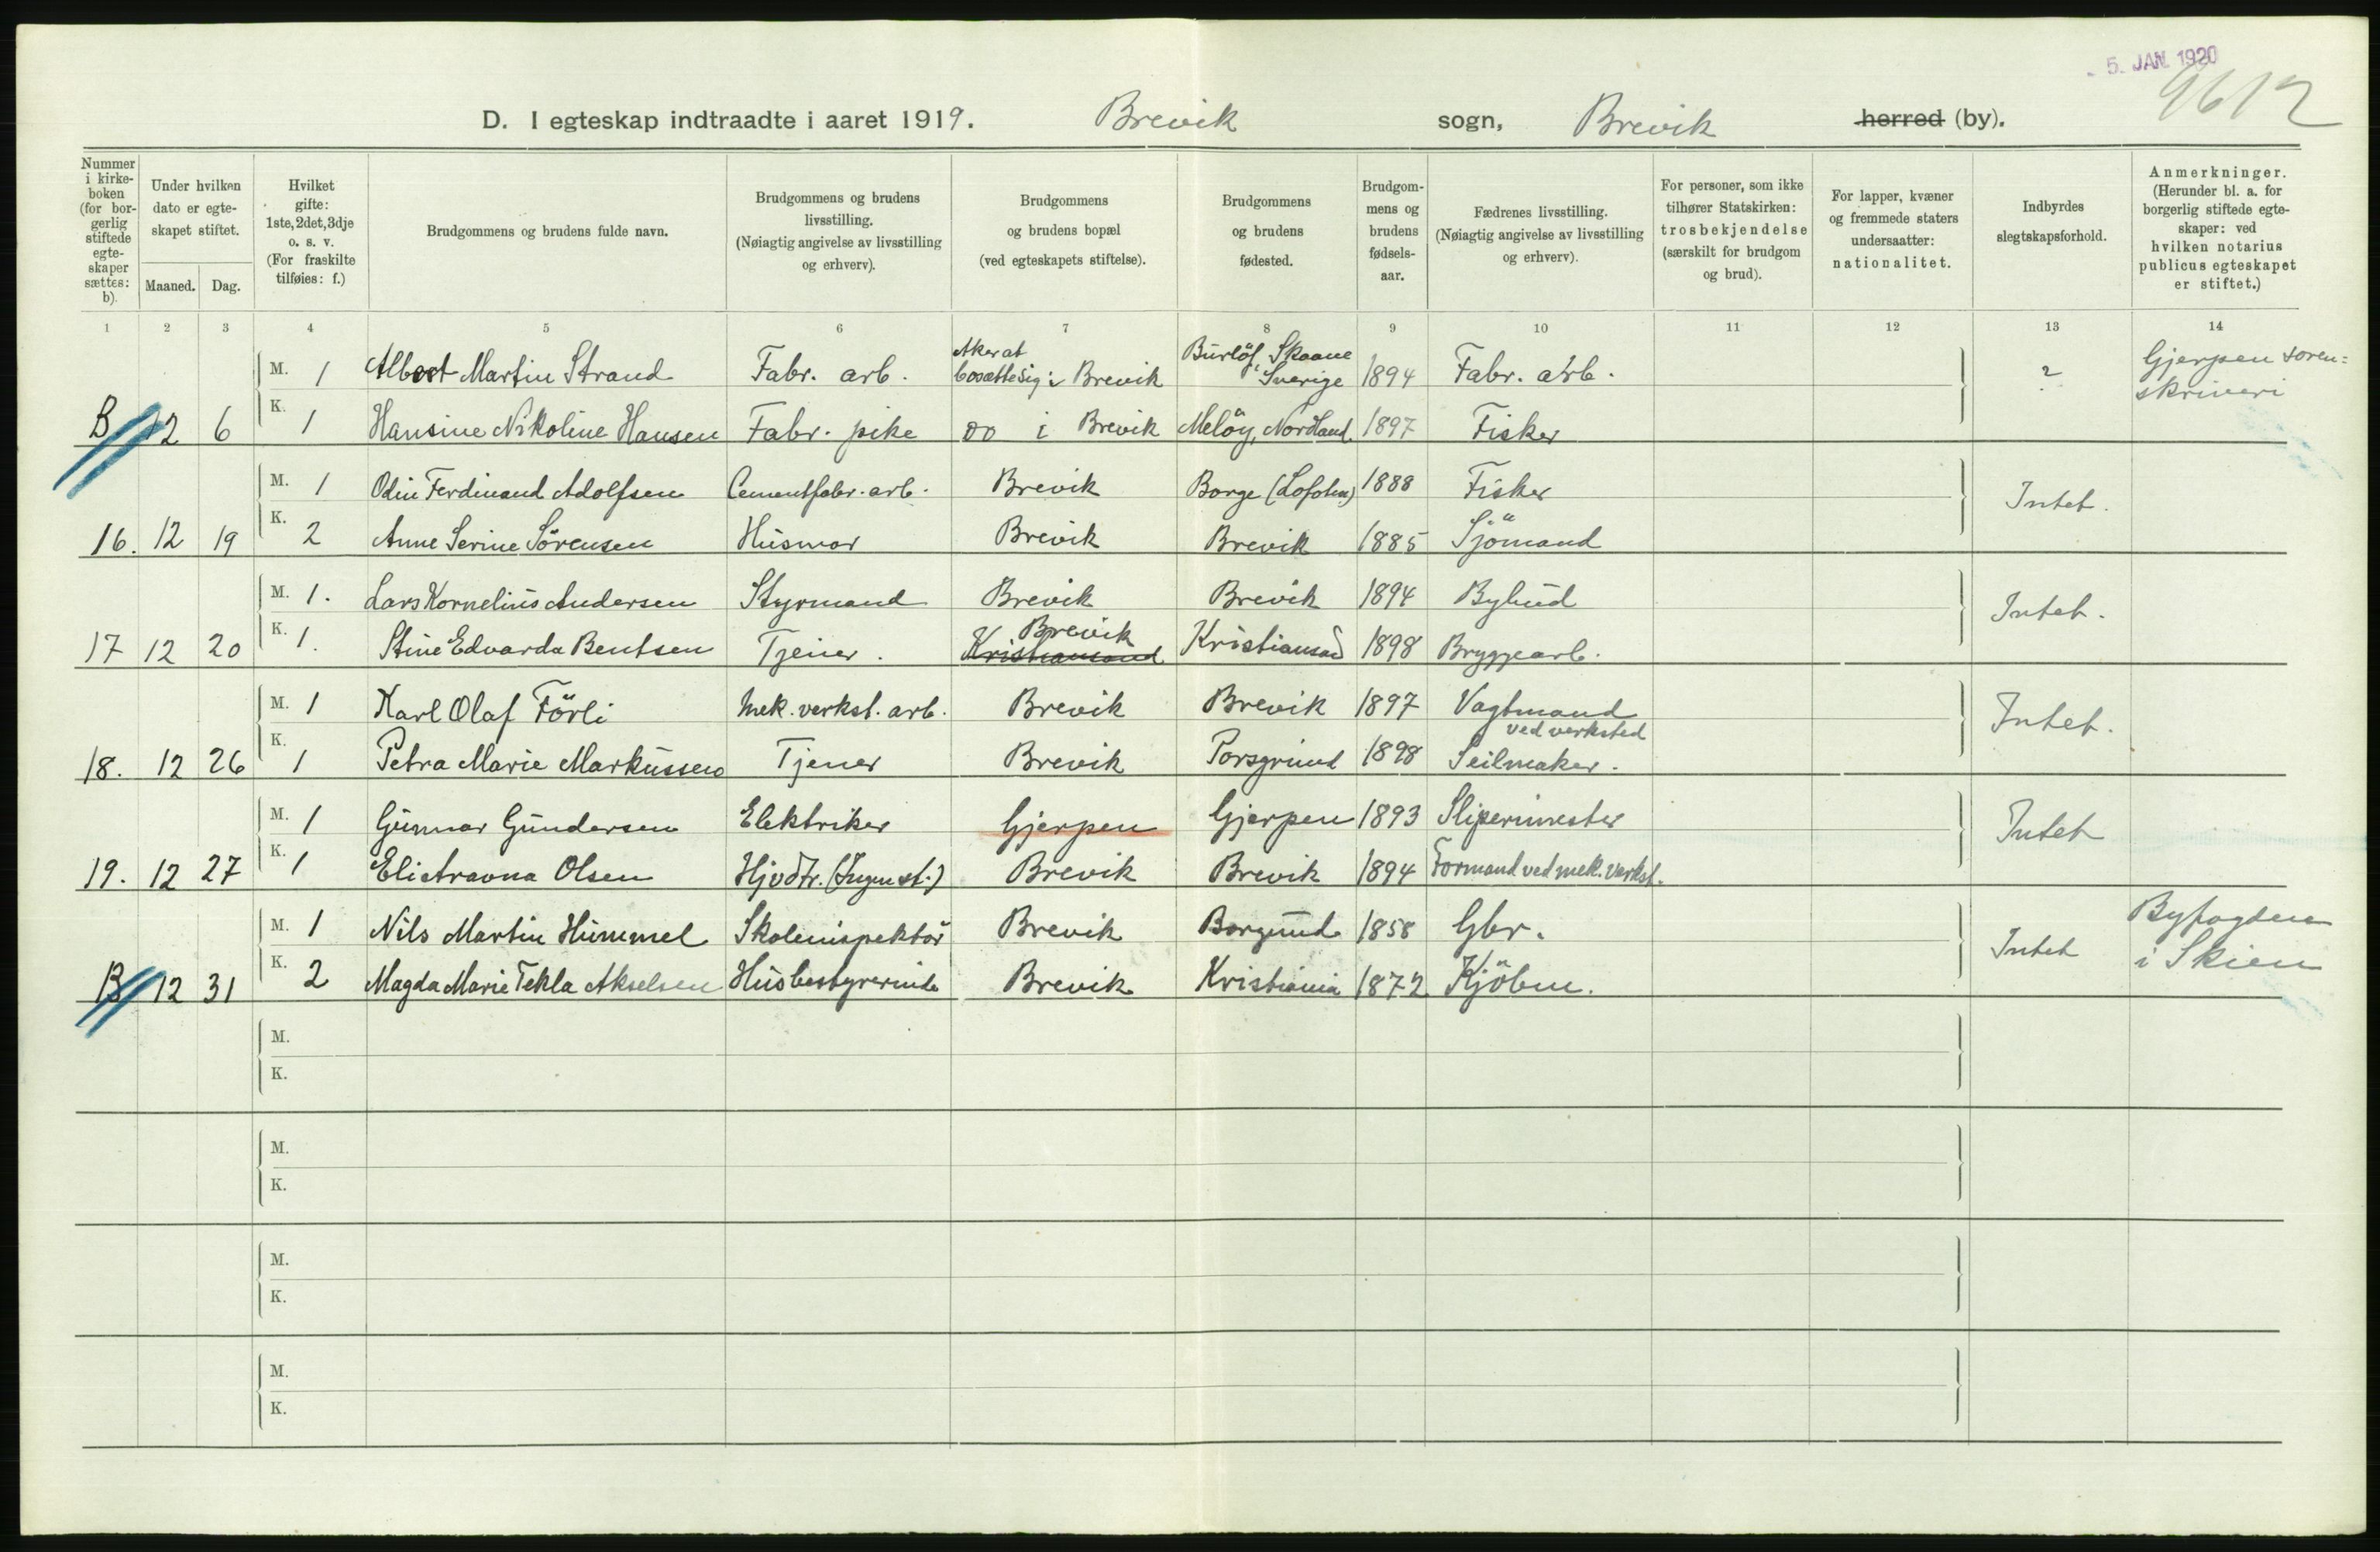 5. JAN. 1920
9612
D. I egteskap indtraadte i aaret 1919. Brevik sogn, Brevik herred (by).
Nummer i kirkeboken (for borgerlig stiftede egteskaper sættes: b).
Under hvilken dato er egteskapet stiftet.
Maaned. Dag.
Hvilket gifte: 1ste, 2det, 3dje o. s. v. (For fraskilte tilføies: f.)
Brudgommens og brudens fulde navn.
Brudgommens og brudens livsstilling. (Nøiagtig angivelse av livsstilling og erhverv).
Brudgommens og brudens bopæl (ved egteskapets stiftelse).
Brudgommens og brudens fødested.
Brudgommens og brudens fødselsaar.
Fædrenes livsstilling. (Nøiagtig angivelse av livsstilling og erhverv).
For personer, som ikke tilhører Statskirken: trosbekjendelse (særskilt for brudgom og brud).
For lapper, kvæner og fremmede staters undersaatter: nationalitet.
Indbyrdes slegtskapsforhold.
Anmerkninger. (Herunder bl. a. for borgerlig stiftede egteskaper: ved hvilken notarius publicus egteskapet er stiftet.)
1 2 3 4 5 6 7 8 9 10 11 12 13 14
M. 1 Albert Martin Strand Fabr. arb. Aker at bosætte sig i Brevik Burlöf, Skaane Sverige 1894 Fabr. arb. ? Gjerpen soren=
skriveri
B 12 6 K. 1 Hansine Nikoline Hansen Fabr. pike do i Brevik Melöy, Nordland 1897 Fisker
M. 1 Odin Ferdinand Adolfsen Cementfabr. arb. Brevik Borge (Lofoten) 1888 Fisker Intet.
16. 12 19 K. 2 Anne Serine Sörensen Husmor Brevik Brevik 1885 Sjömand
M. 1. Lars Kornelius Andersen Styrmand Brevik Brevik 1894 Bybud Intet.
17 12 20 K. 1. Stine Edvarda Bentsen Tjener. Brevik Kristiansand Kristiansand 1898 Bryggearb.
M. 1 Karl Olaf Förli Mek. verkst. arb. Brevik Brevik 1897 Vagtmand ved verksted Intet.
18. 12 26 K. 1 Petra Marie Markussen Tjener Brevik Porsgrund 1898 Seilmaker.
M. 1 Gunnar Gundersen Elektriker Gjerpen Gjerpen 1893 Sliperimester Intet
19. 12 27 K. 1 Olsen Hjv. dtr. Brevik Brevik 1894 Formand ved mek. verkst.
M. 1 Nils Martin Hummel Skoleinspektör Brevik Borgund 1858 Gbr. Intet Byfogden
i Skien
B 12 31 K. 2 Magda Marie Tekla Akselsen Husbestyrerinde Brevik Kristiania 1872 Kjöbm.
M.
K.
M.
K.
M.
K.
M.
K.